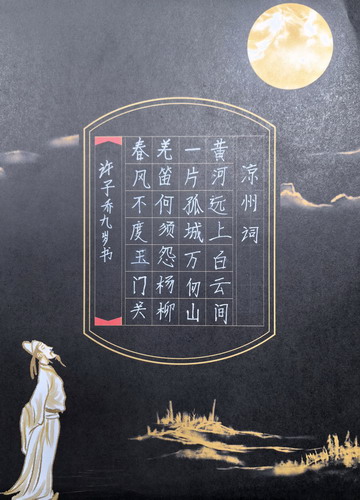 凉州词
黄河远上白云间
一片孤城万仞山
羌笛何须怨杨柳
春风不度玉门关
许子乔九岁书